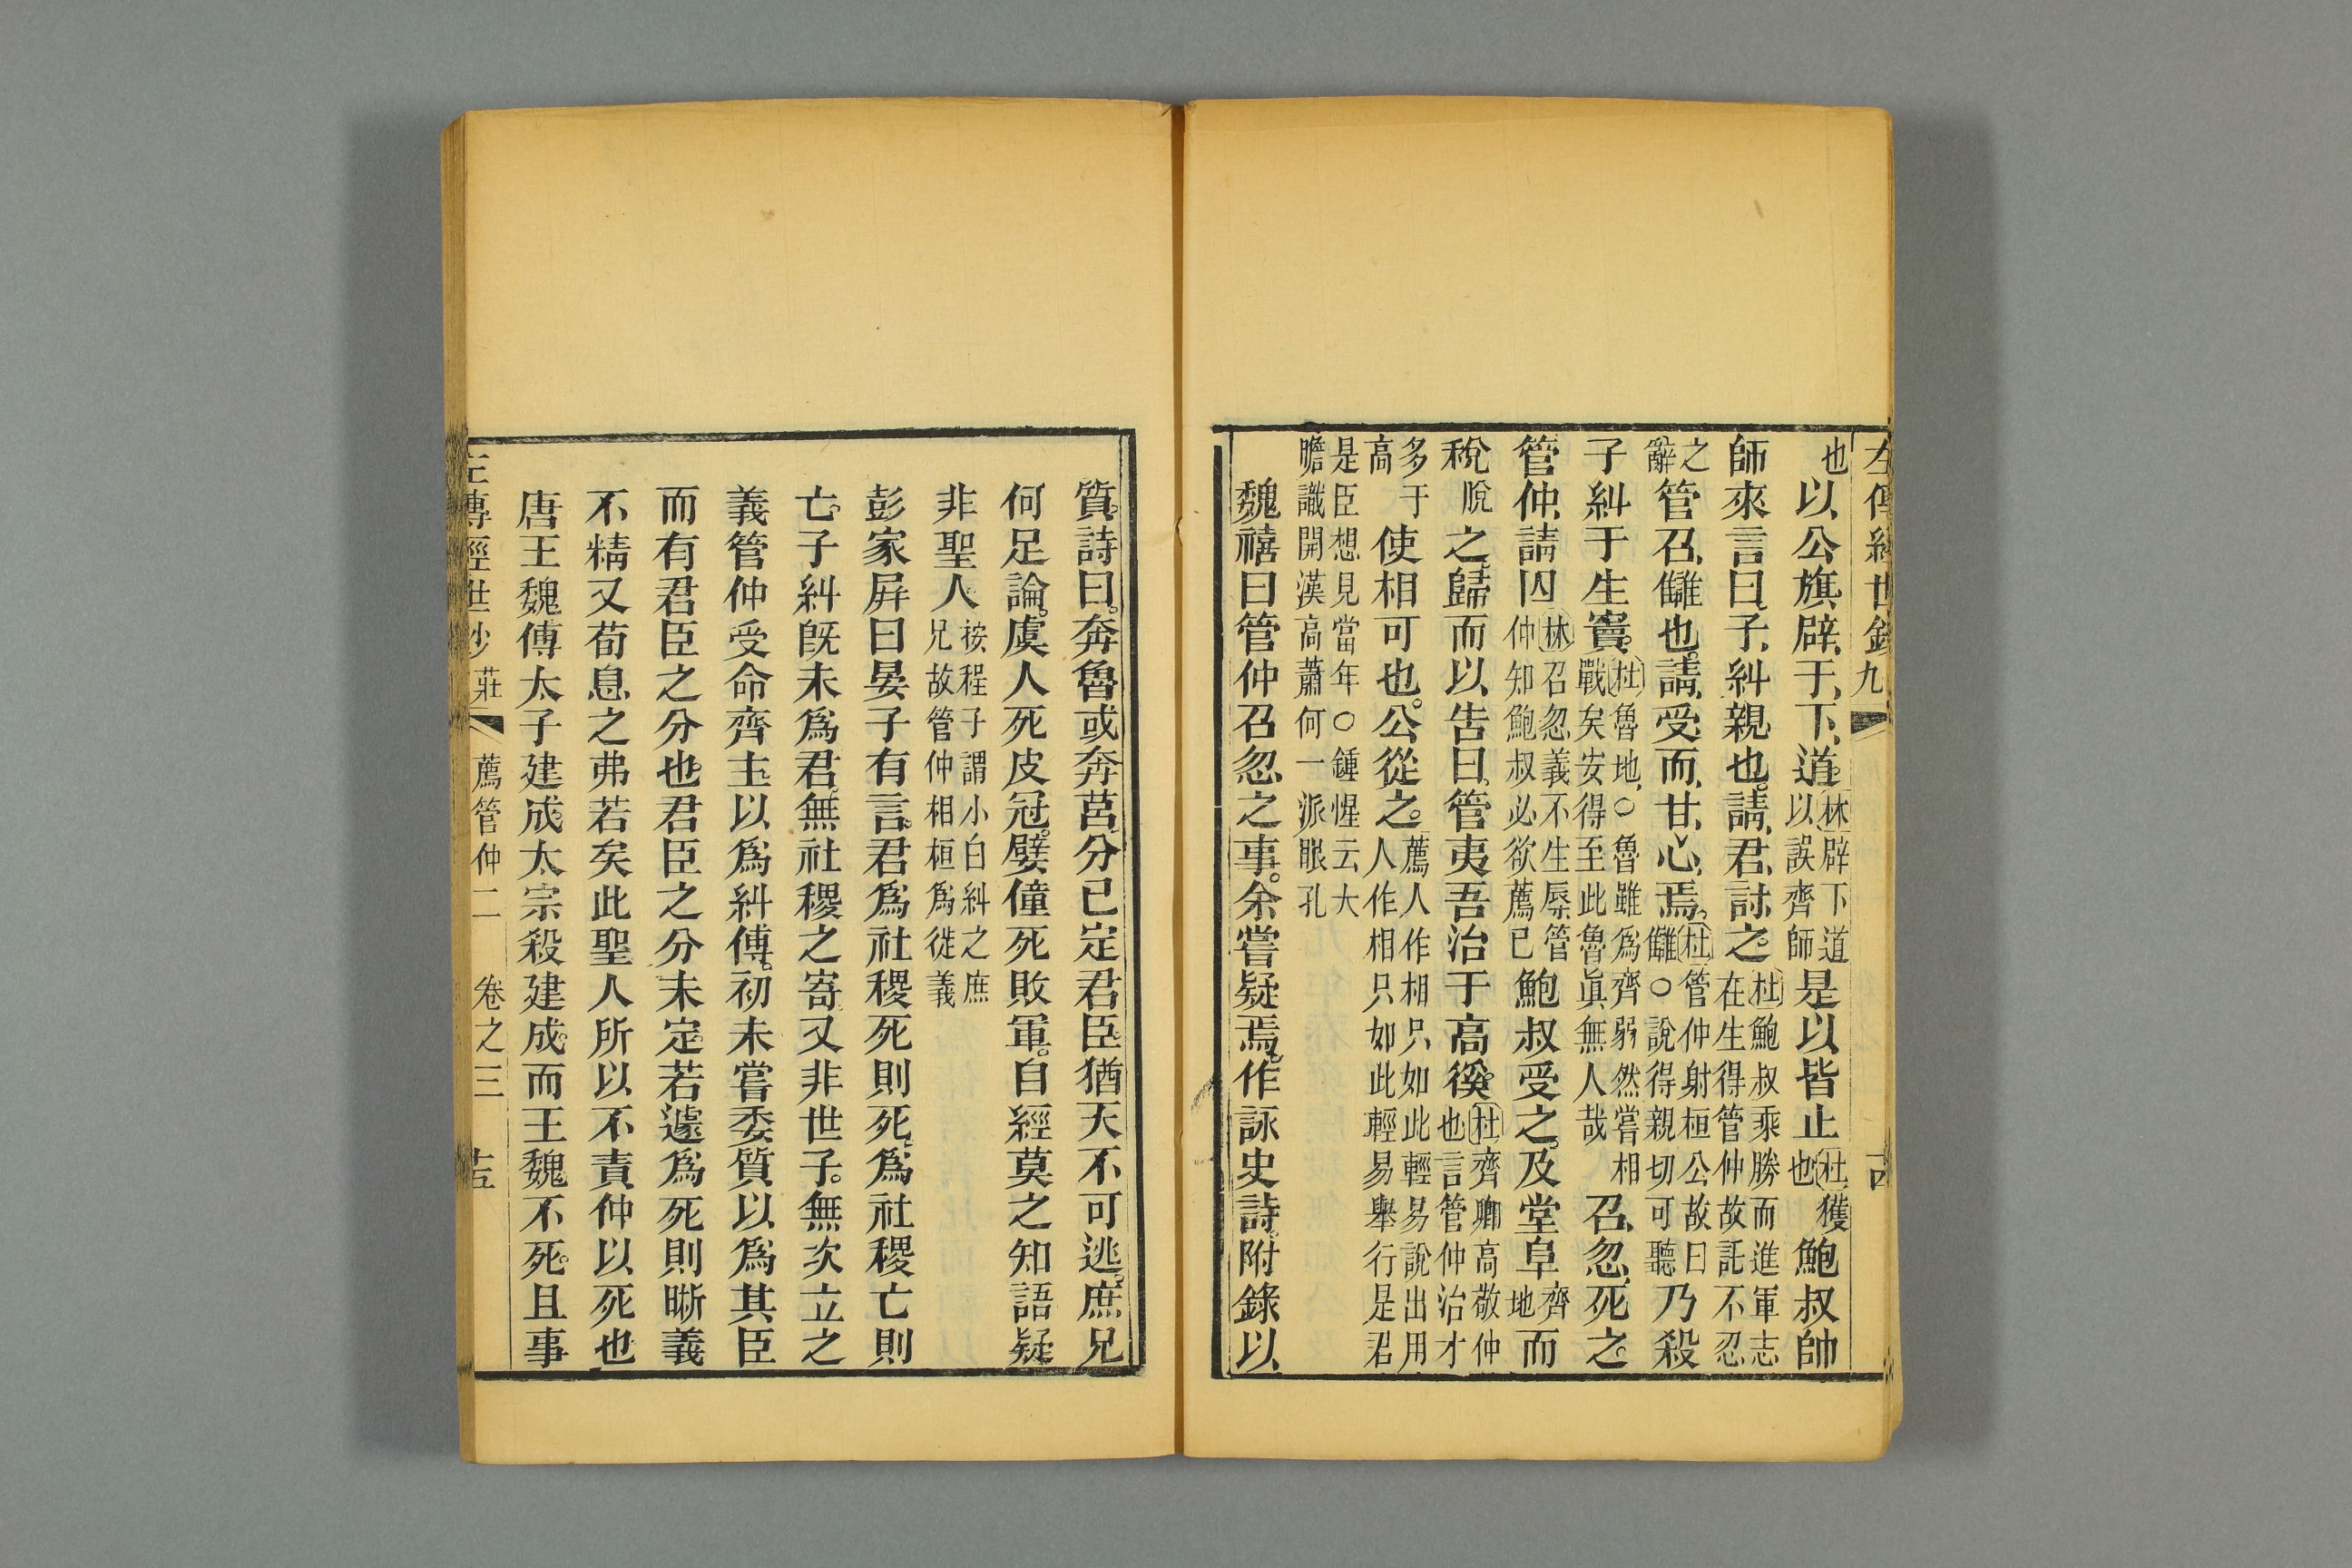 左傳經世鈔 九 十四
也以公旗辟于下道林辟下道以誤齊師是以皆止杜獲也鮑叔帥
師來言曰子糾親也請君討之杜鮑叔乘勝而進軍志在生得管仲故託不忍
之辭管召讎也請受而甘心焉杜管仲射桓公故曰讎○說得親切可聽乃殺
子糾于生竇杜魯地○魯雖為齊弱然嘗相戰矣安得至此魯眞無人哉召忽死之
管仲請囚林召忽義不生辱管仲知鮑叔必欲薦已鮑叔受之及堂阜齊地而
稅脫之歸而以告曰管夷吾治于高傒杜齊卿高敬仲也言管仲治才
多于高使相可也公從之薦人作相只如此輕易說出用人作相只如此輕易舉行是君
是臣想見當年○鍾惺云大膽識開漢高蕭何一派眼孔
魏禧曰管仲召忽之事余嘗疑焉作詠史詩附錄以
質詩曰奔魯或奔莒分已定君臣猶天不可逃庶兄
何足論虞人死皮冠嬖僮死敗軍自經莫之知語疑
非聖人按程子謂小白糾之庶兄故管仲相桓為徙義
彭家屛曰晏子有言君爲社稷死則死爲社稷亡則
亡子糾旣未爲君無社稷之寄又非世子無次立之
義管仲受命齊主以爲糾傅初未嘗委質以爲其臣
而有君臣之分也君臣之分未定若遽爲死則晰義
不精又荀息之弗若矣此聖人所以不責仲以死也
唐王魏傅太子建成太宗殺建成而王魏不死且事
左傳經世鈔 莊 薦管仲二 卷之三 十五